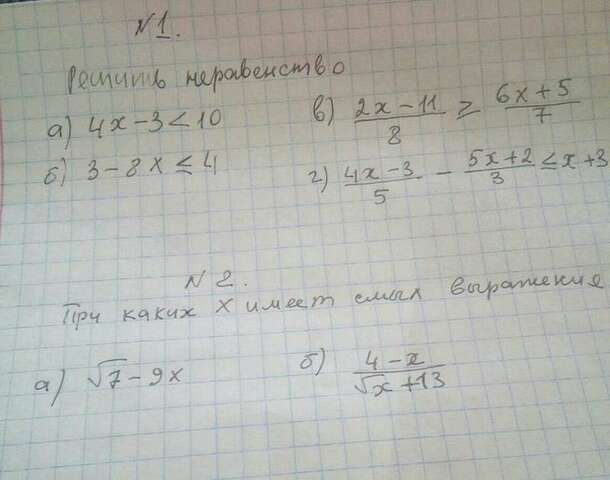 N1.
Решить неравенство
а) 4x-3<10
в) (2x-11)/8 ≥ (6x+5)/7
б) 3-8x≤4
г) (4x-3)/5 - (5x+2)/3 ≤ x+3
N 2.
При каких x имеет смысл выражения
а) √7-9x
б) (4-x)/(√x+13)